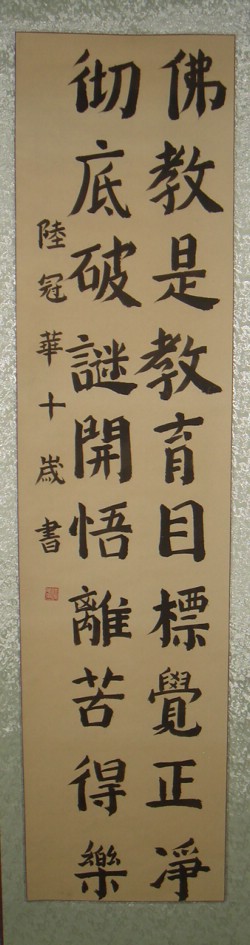 佛教是教育目標覺正淨
彻底破謎開悟離苦得樂
陸冠華十歲書